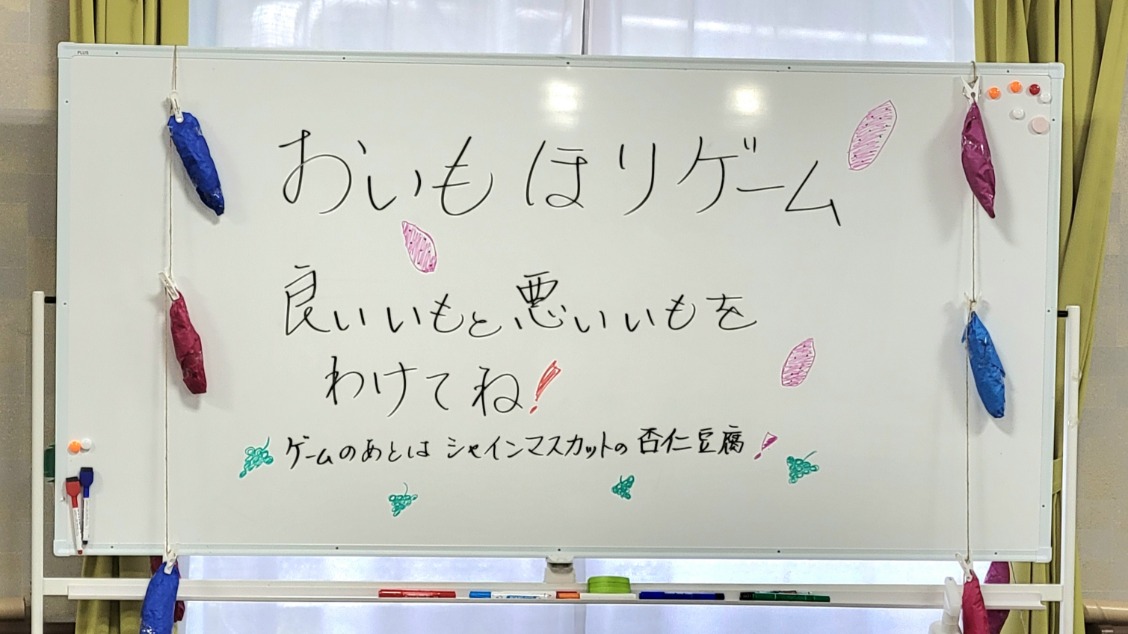 PLUS
おいもほりゲーム
良いいもと悪いいもを
わけてね!
ゲームのあとは シャインマスカットの杏仁豆腐!